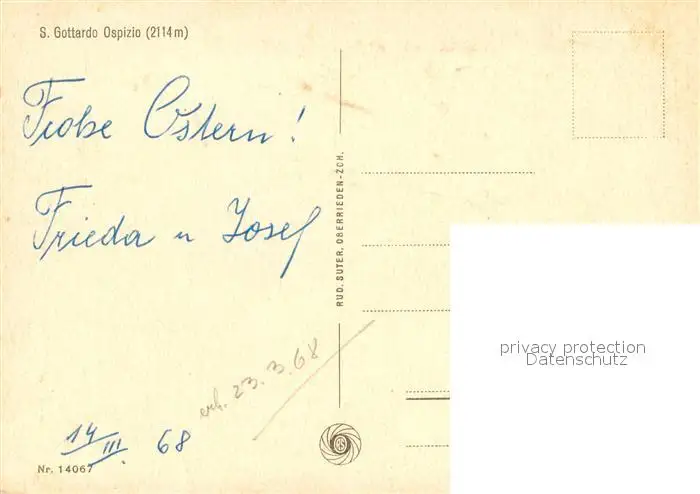 S. Gottardo Ospizio (2114 m)
Frohe Ostern!
Frieda u Josef
erh. 23.3.68
14/III 68
Nr. 14067
RUD. SUTER, OBERRIEDEN-ZCH.
privacy protection
Datenschutz